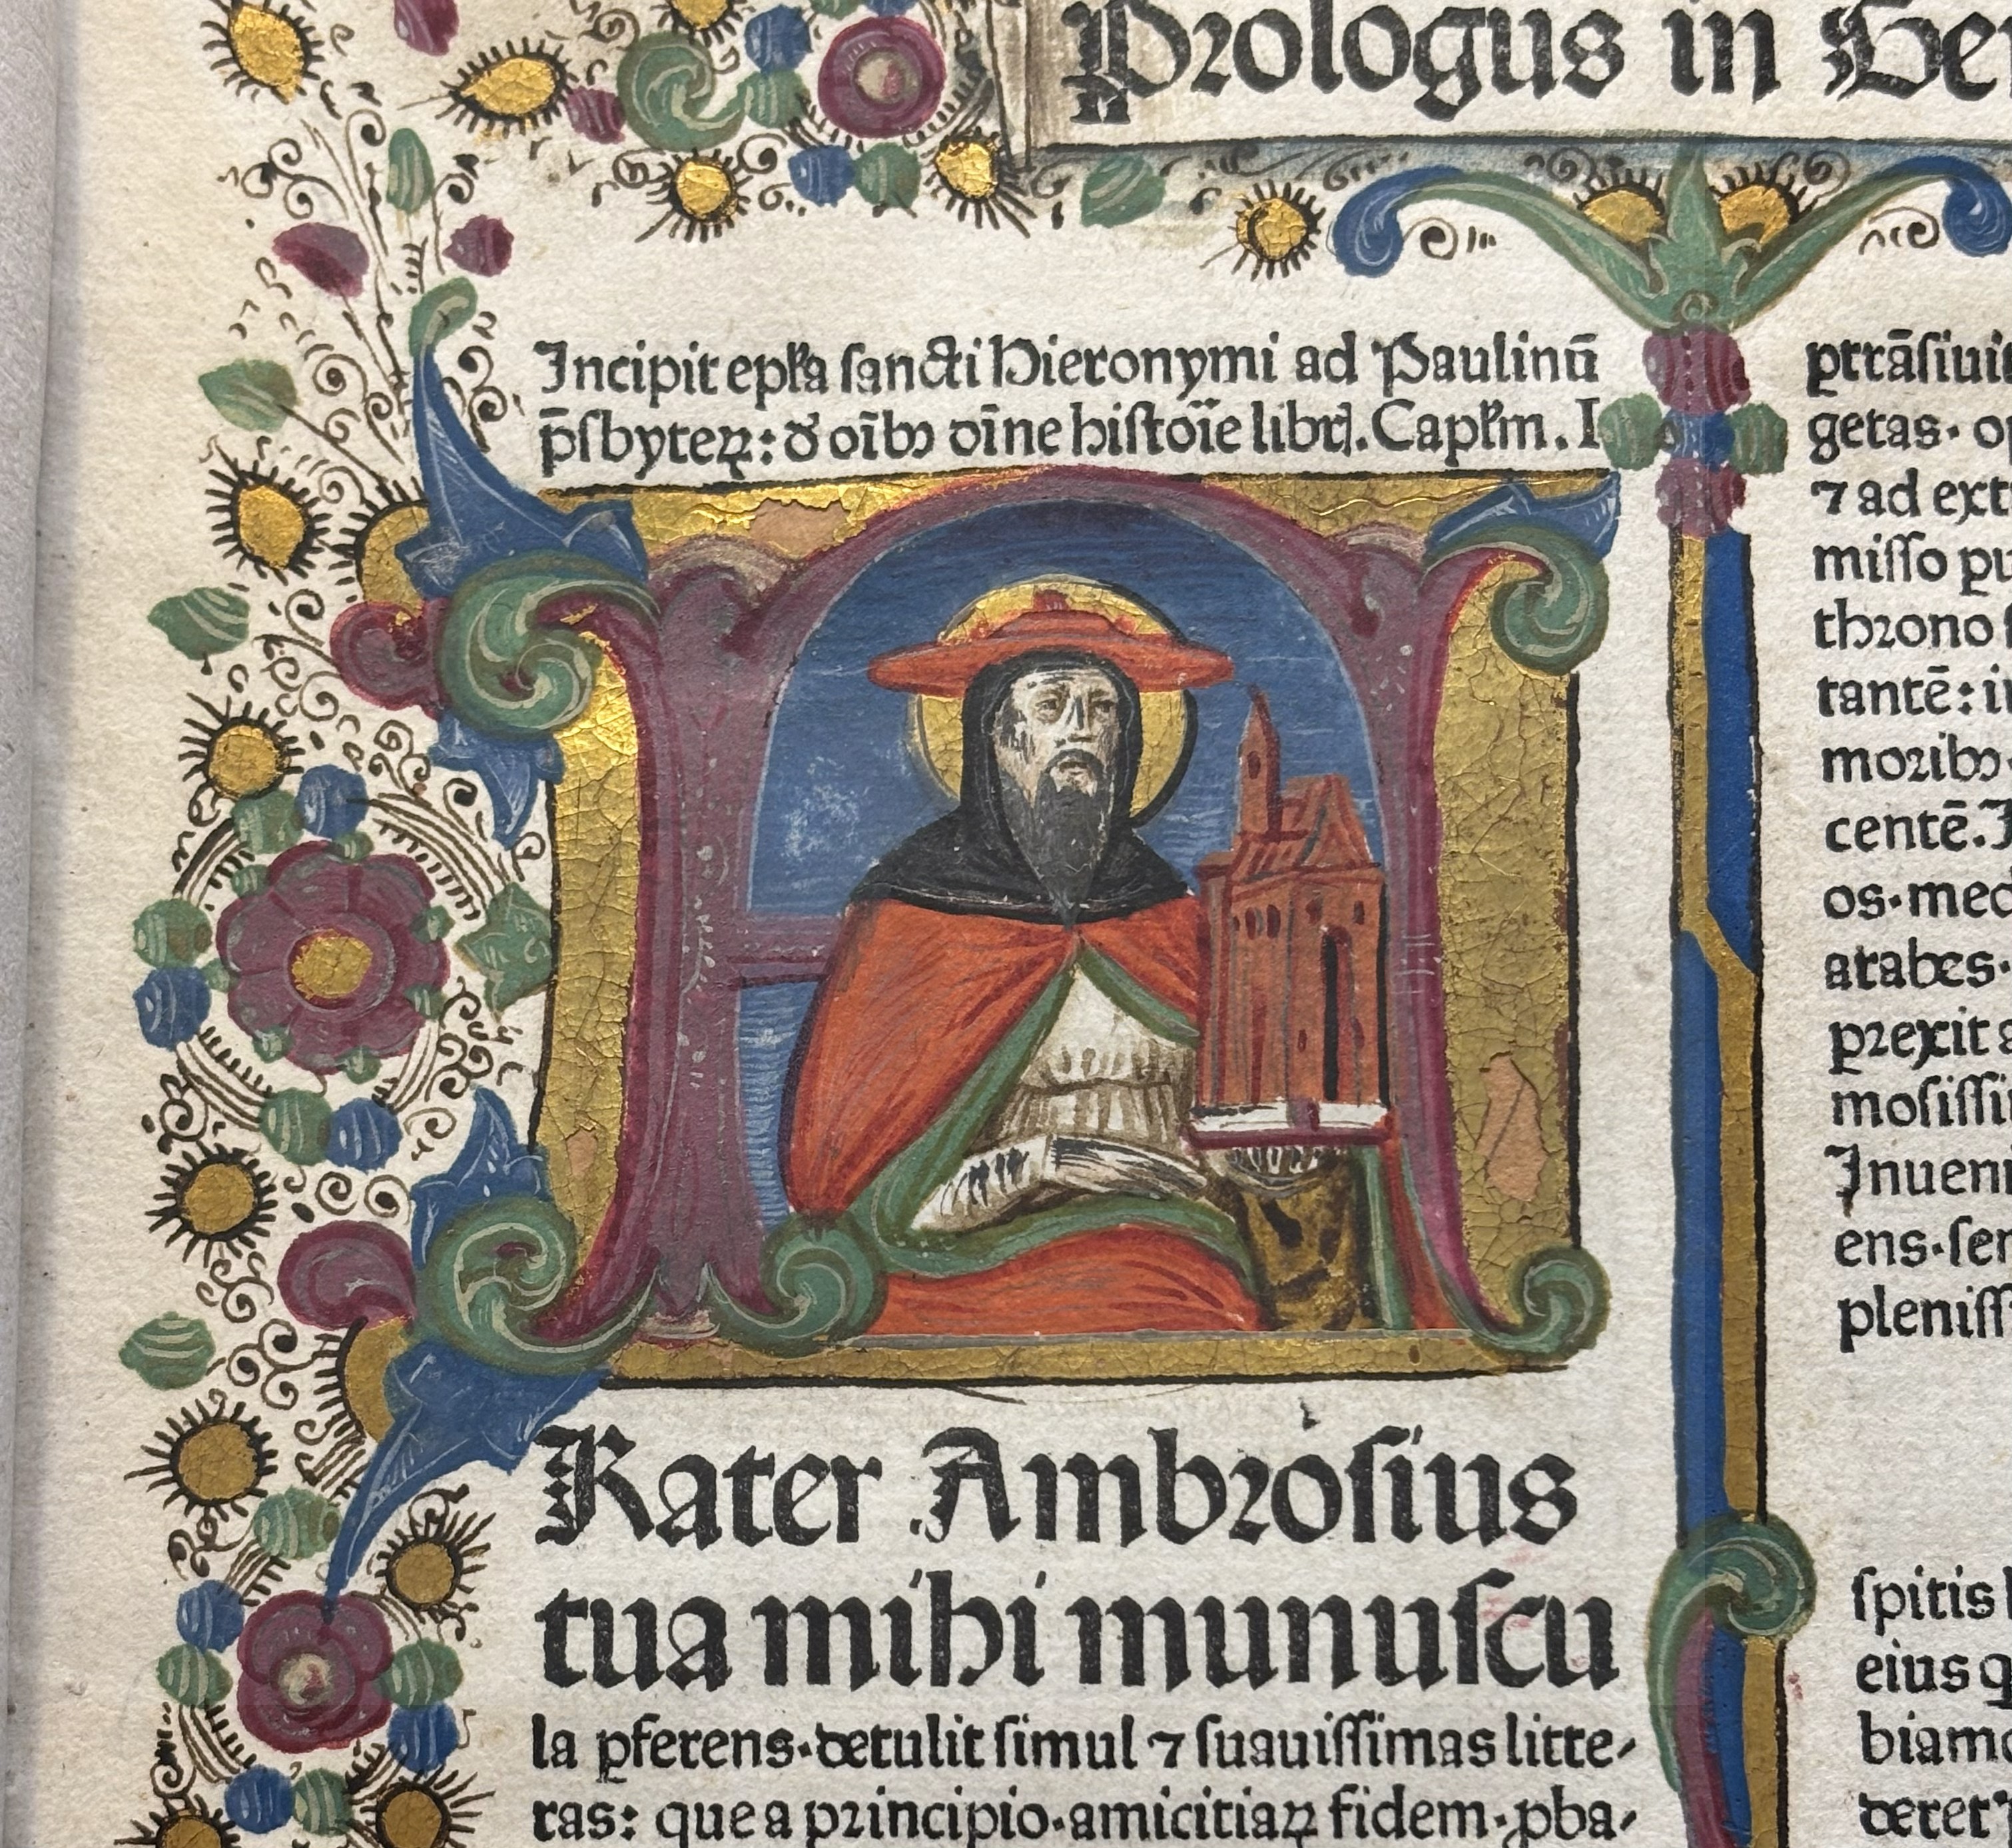 Prologus in Gen
Incipit epl̄a sancti Hieronymi ad Paulinū
p̄sbyteꝝ: ď oīb⁹ diuine histoīe libr̄. Capl̄m. I
F
Rater Ambrosius
tua mihi munuscu
la ꝑferens·detulit simul ⁊ suauissimas litte/
ras: que a principio·amicitiaꝝ fidem·ꝓba/
ptrāsiui
getas·
⁊ ad ext
misso pu
throno
tantē: i
morib⁹·
centē.
os·med
arabes·
prexit
mosissi
Inueni
ens·ser
pleniss
spitis
eius q
biam
deret